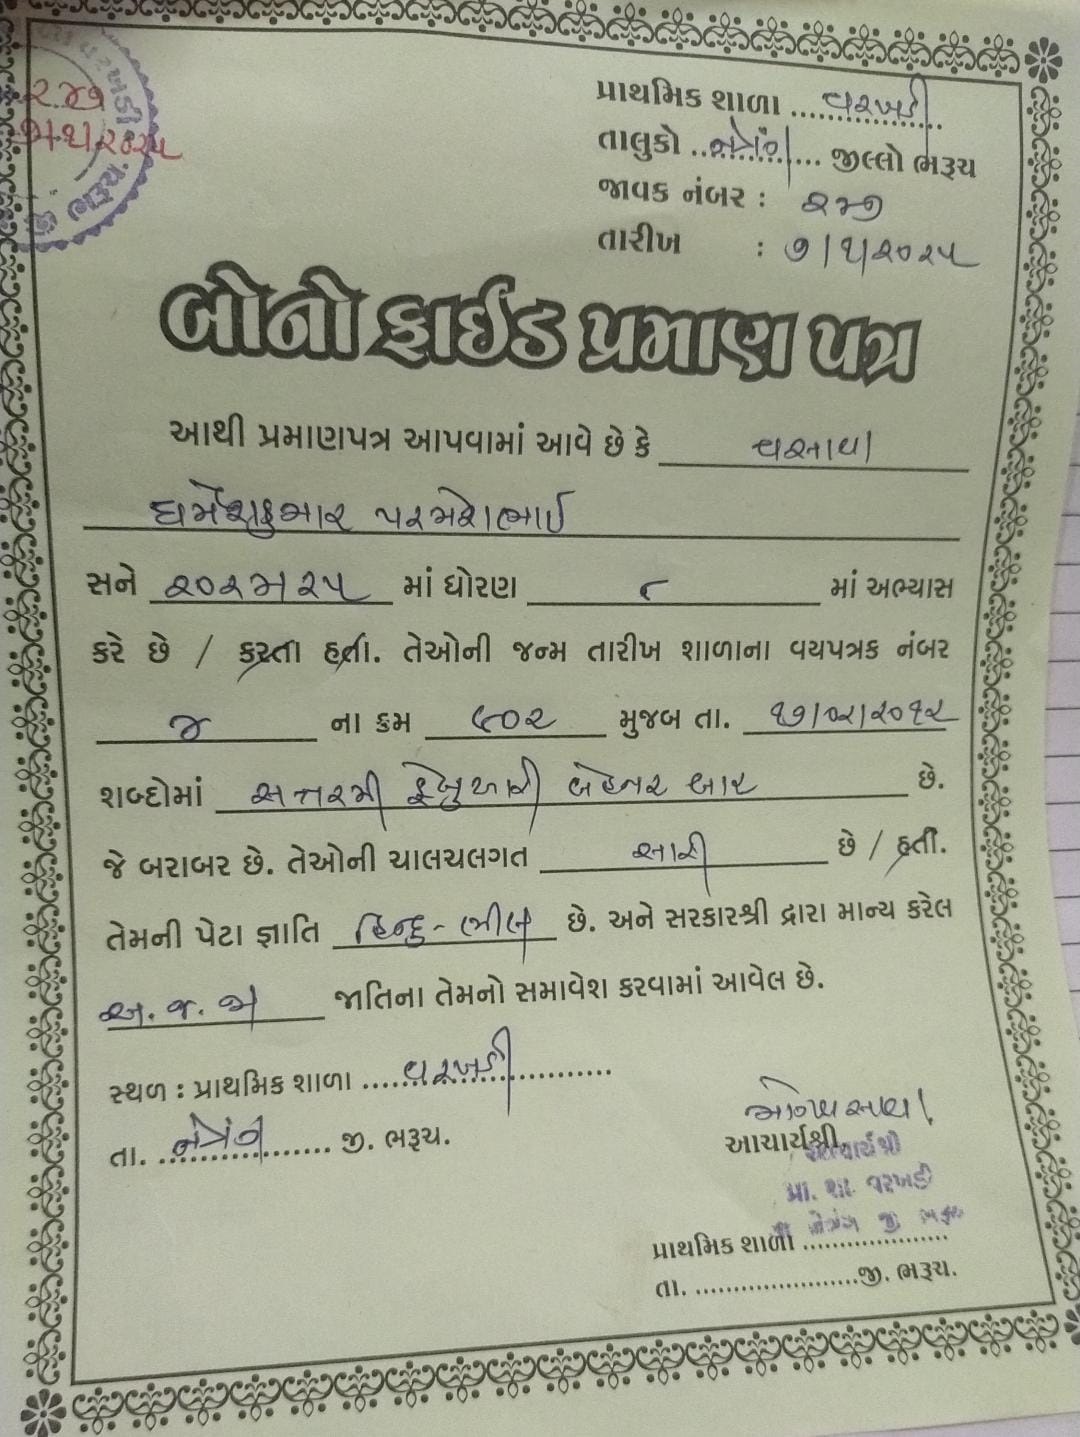 ૨૪૭
૭/૧/૨૦૨૫
પ્રાથમિક શાળા ....વરખડી....
તાલુકો ..નેત્રંગ.... જીલ્લો ભરૂચ
જાવક નંબર : ૨૪૭
તારીખ : ૭/૧/૨૦૨૫
બોનોફાઈડ પ્રમાણ પત્ર
આથી પ્રમાણપત્ર આપવામાં આવે છે કે વસાવા
ધર્મેશકુમાર પરમેશભાઈ
સને ૨૦૨૪/૨૫ માં ધોરણ ૮ માં અભ્યાસ
કરે છે / કરતા હતા. તેઓની જન્મ તારીખ શાળાના વયપત્રક નંબર
૪ ના ક્રમ ૬૦૨ મુજબ તા. ૧૭/૦૨/૨૦૧૨
શબ્દોમાં સત્તરમી ફેબ્રુઆરી બેહજાર બાર છે.
જે બરાબર છે. તેઓની ચાલચલગત સારી છે / હતી.
તેમની પેટા જ્ઞાતિ હિન્દુ - ભીલ છે. અને સરકારશ્રી દ્વારા માન્ય કરેલ
અ. જ. જા જાતિના તેમનો સમાવેશ કરવામાં આવેલ છે.
સ્થળ : પ્રાથમિક શાળા ....વરખડી............
તા. ..નેત્રંગ....... જી. ભરૂચ.
આચાર્યશ્રી,
આચાર્યશ્રી
પ્રા. શા. વરખડી
તા નેત્રંગ જી ભરૂચ
પ્રાથમિક શાળા ....................
તા. ......................જી. ભરૂચ.